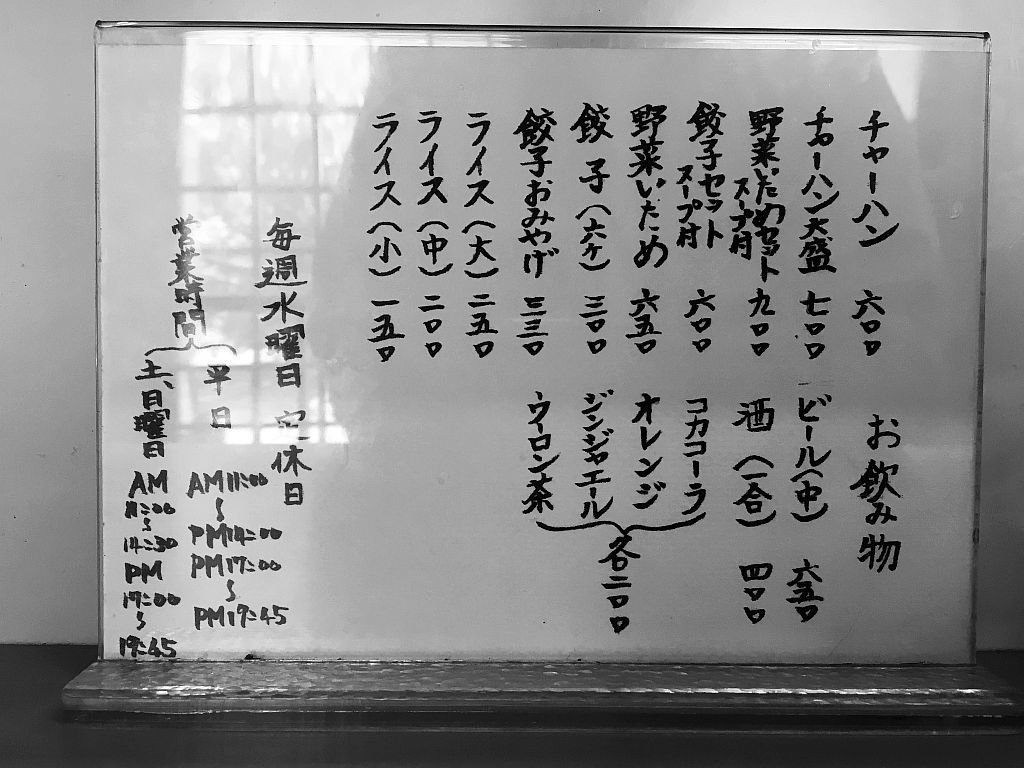 チャーハン 六〇〇
チャーハン大盛 七〇〇
野菜いためセット スープ付 九〇〇
餃子セット スープ付 六〇〇
野菜いため 六五〇
餃子（六ヶ） 三〇〇
餃子おみやげ 三三〇
ライス（大） 二五〇
ライス（中） 二〇〇
ライス（小） 一五〇
お飲み物
ビール（中） 六五〇
酒（一合） 四〇〇
コカコーラ
オレンジ
ジンジャエール
ウーロン茶
各二〇〇
毎週水曜日 定休日
営業時間
平日
AM11:00
〜
PM14:00
PM17:00
〜
PM19:45
土、日曜日
AM
11:00
〜
14:30
PM
17:00
〜
19:45